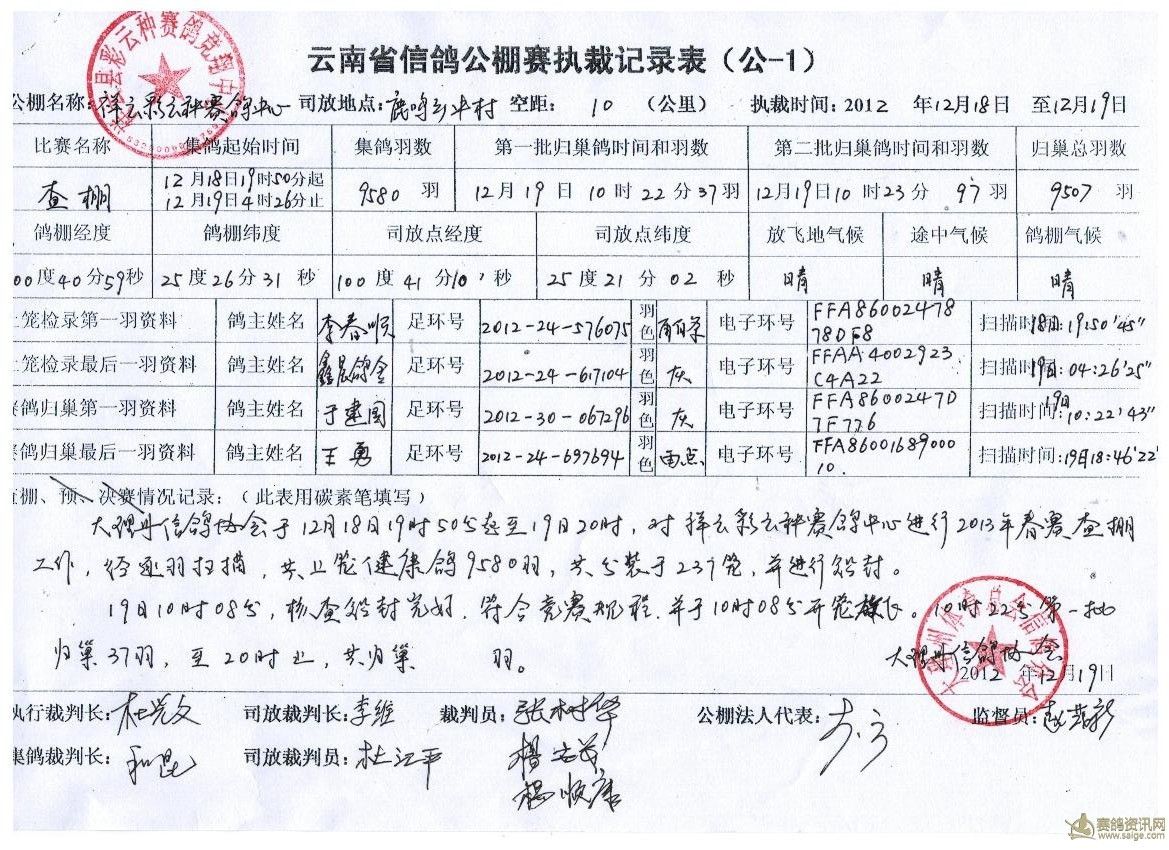 云南省信鸽公棚赛执裁记录表（公-1）
公棚名称：祥云彩云种赛鸽中心 司放地点：鹿鸣乡 村 空距： 10 （公里） 执裁时间：2012 年12月18日 至12月19日
比赛名称 集鸽起始时间 集鸽羽数 第一批归巢鸽时间和羽数 第二批归巢鸽时间和羽数 归巢总羽数
查棚 12月18日19时50分起 12月19日4时26分止 9580 羽 12月19日10时22分37羽 12月19日10时23分 97羽 9507 羽
鸽棚经度 鸽棚纬度 司放点经度 司放点纬度 放飞地气候 途中气候 鸽棚气候
00度40分59秒 25度26分31秒 100度41分10'秒 25度21分02秒 晴 晴 晴
笼检录第一羽资料 鸽主姓名 李春顺 足环号 2012-24-576075 羽色 雨白条 电子环号 FFA86002478 78DF8 扫描时间：18日：19:50'45"
笼检录最后一羽资料 鸽主姓名 鑫晨鸽舍 足环号 2012-24-617104 羽色 灰 电子环号 FFAA4002923 C4A22 扫描时间：19日：04:26'25"
赛鸽归巢第一羽资料 鸽主姓名 于建国 足环号 2012-30-067296 羽色 灰 电子环号 FFA8600247D 7F776 扫描时间：19日10:22'43"
赛鸽归巢最后一羽资料 鸽主姓名 王勇 足环号 2012-24-697694 羽色 雨点 电子环号 FFA86001689000 10. 扫描时间：19日18:46'22"
查棚、预、决赛情况记录：（此表用碳素笔填写）
大理州信鸽协会于12月18日19时50分起至19日20时，对祥云彩云种赛鸽中心进行2013年春赛查棚
工作，经逐羽扫描，共上笼健康鸽9580羽，共分装于237笼，并进行铅封。
19日10时08分，核查铅封完好，符合竞赛规程，并于10时08分开笼放飞。10时22分第一批
归巢37羽，至20时止，共归巢 羽。
大理州信鸽协会
2012 年12月19日
执行裁判长：杜兴文 司放裁判长：李维 裁判员：张树华 公棚法人代表： 监督员：
集鸽裁判长：和昆 司放裁判员：杜江平 杨
杨顺唐
赛鸽资讯网
www.saige.com